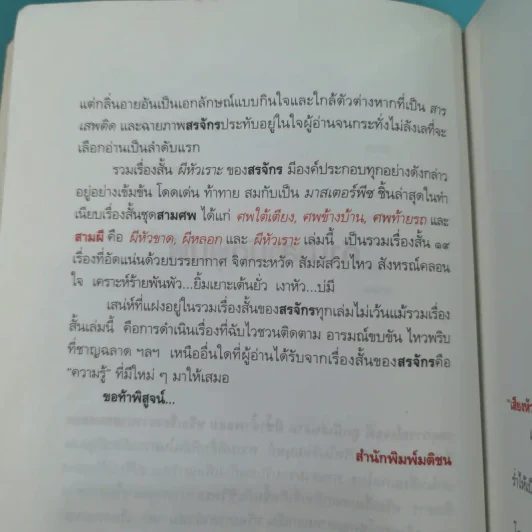 แต่กลิ่นอายอันเป็นเอกลักษณ์แบบกินใจและใกล้ตัวต่างหากที่เป็น สาร
เสพติด และฉายภาพสรจักรประทับอยู่ในใจผู้อ่านจนกระทั่งไม่ลังเลที่จะ
เลือกอ่านเป็นลำดับแรก
รวมเรื่องสั้น ผีหัวเราะ ของสรจักร มีองค์ประกอบทุกอย่างดังกล่าว
อยู่อย่างเข้มข้น โดดเด่น ท้าทาย สมกับเป็น มาสเตอร์พีซ ชิ้นล่าสุดในทำ
เนียบเรื่องสั้นชุดสามศพ ได้แก่ ศพใต้เตียง, ศพข้างบ้าน, ศพท้ายรถ และ
สามผี คือ ผีหัวขาด, ผีหลอก และ ผีหัวเราะ เล่มนี้ เป็นรวมเรื่องสั้น ๑๙
เรื่องที่อัดแน่นด้วยบรรยากาศ จิตกระหวัด สัมผัสวิบไหว สังหรณ์คลอน
ใจ เคราะห์ร้ายพันพัว...ยิ้มเยาะเต้นยั่ว เงาหัว...บ่มี
เสน่ห์ที่แฝงอยู่ในรวมเรื่องสั้นของสรจักรทุกเล่มไม่เว้นแม้รวมเรื่อง
สั้นเล่มนี้ คือการดำเนินเรื่องที่ฉับไวชวนติดตาม อารมณ์ขบขัน ไหวพริบ
ที่ชาญฉลาด ฯลฯ เหนืออื่นใดที่ผู้อ่านได้รับจากเรื่องสั้นของสรจักรคือ
"ความรู้" ที่มีใหม่ ๆ มาให้เสมอ
ขอท้าพิสูจน์...
สำนักพิมพ์มติชน